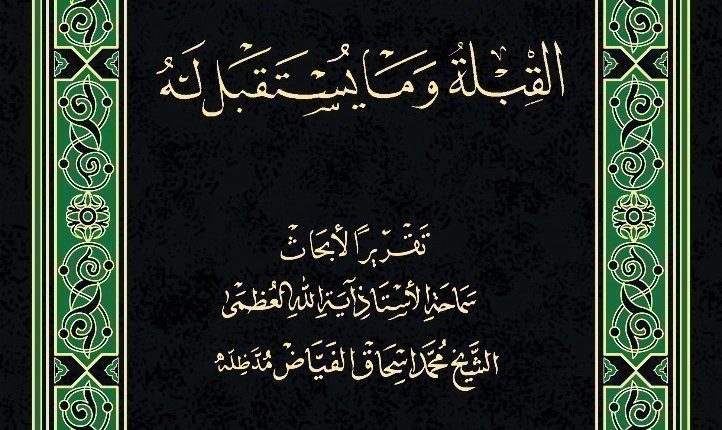 القِبْلَةُ وَمَا يُسْتَقبَل لَهُ
تَقْرِيرًا لأبحَاثِ
سَمَاحَةِ الأُسْتَاذِ آيَةِ اللهِ العُظمَى
الشَّيخ مُحَمَّد اِسحَاق الفَيَّاض مُدَّظِلّه